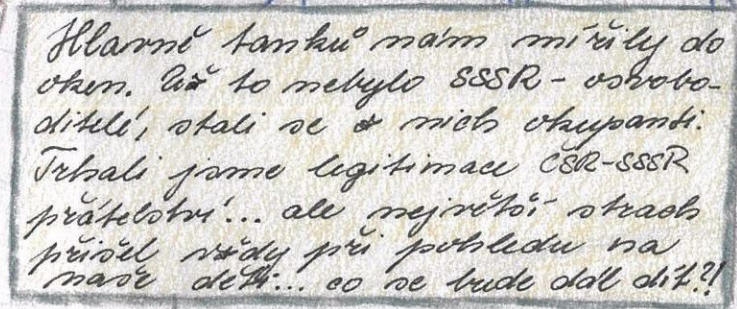 Hlavně tanků nám mířily do
oken. Už to nebylo SSSR - osvobo-
ditelé, stali se z nich okupanti.
Trhali jsme legitimace ČSR-SSSR
přátelství... ale největší strach
přišel vždy při pohledu na
naše děti... co se bude dál dít?!